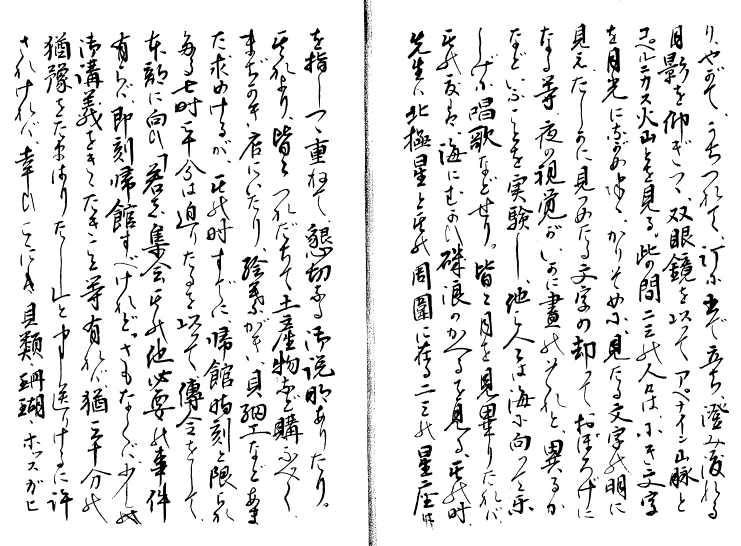 り、やがて、うちつれて、汀に出で立ち澄み渡れる
月影を仰ぎつゝ、双眼鏡を以て アペナイン山脈と
コペルニカス火山とを見る。此の間 二三の人々は、小き文字
を月光に かりそめに、見たる文字の明に
見え、たしかに見つめたる文字の却って おぼろげに
なる等 夜の視覚が、いかに畫のそれと、異るか
などいふことを実験し、他の人々は海に向って
しばし唱歌などせり。皆々月を見畢りたれば
其の友は、海にむかひ磯浪のかへるを見る、其の時
先生は 北極星と其の周圍に在る二三の星座
を指しつゝ重ねて、懇切なる御説明ありたり。
それより、皆々つれだちて土産物など購ふべく
まぢかき店にいたり、絵葉がき、貝細工などあま
た求めけるが、其の時 すでに帰館時刻と限られ
たる七時半 今は迫りたるを以て、傳令をして、
本部に向ひ「若し集会其の他必要の事件
有らば、即刻帰館すべけれど、さもなくば、少しの
御講義をきゝたきこと等有れば、猶三十分の
猶豫をたまはりたし」と申し送りけるに 許
されければ、幸ひ 貝類、珊瑚、ホッスガヒ